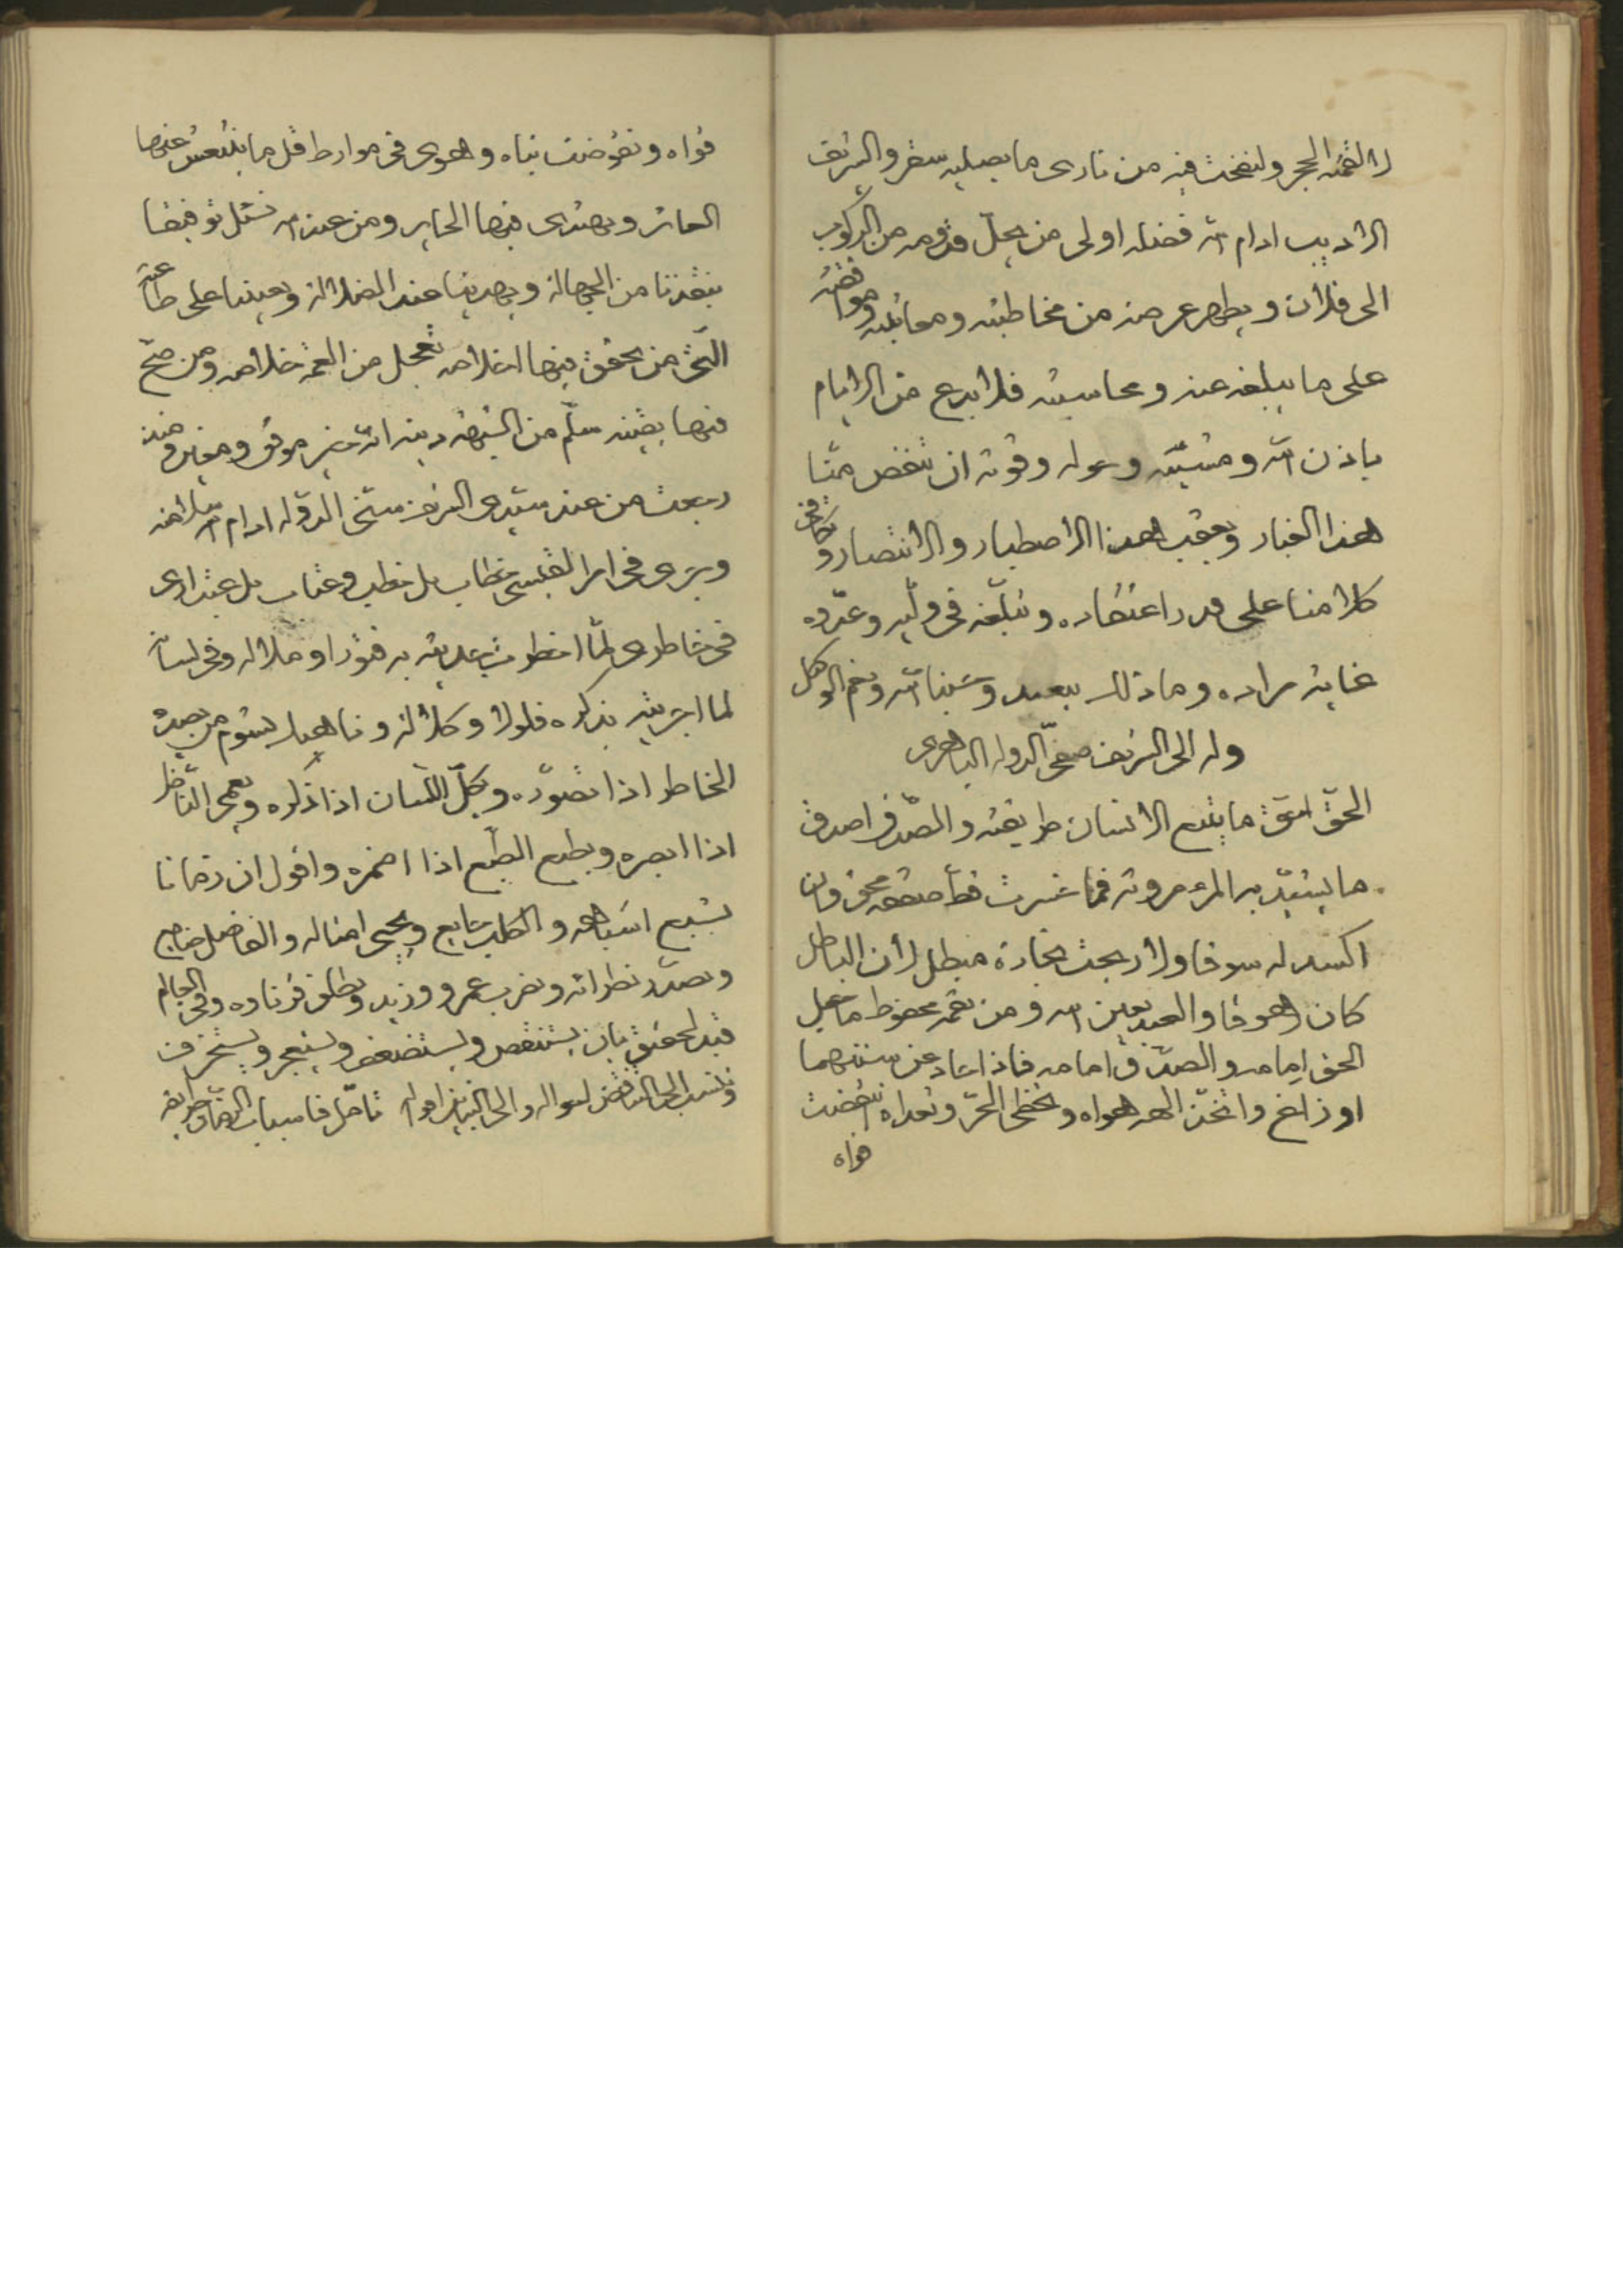 لالقمته الحجر ولنفخت فيه من نارى ما يصليه سقر والشريف
الاديب ادام الله فضله اولى من يجلّ قدومه من الركوب
الى فلان ويطهر عرضه من مخاطبته ومعاتبته ومواقفته
على ما يبلغه عنه ومحاسبته فلا بدع فى الايام
باذن الله ومشيّته وحوله وقوته ان تنفض عنّا
هذا الغبار ويعقب هذا الاصطبار والانتصار وتكافى
كلا منا على قدر اعتقاده وتبلّغه فى وليّه وعدوّه
غاية مراده وما ذلك ببعيد وحسبنا الله ونعم الوكيل
وله الى الشريف صفىّ الدوله الباهرى
الحقّ احقّ ما يتبع الانسان طريقته والصّدق اصدق
ما يشيّد به المرء مروته فما خسرت قطّ صفقة محق وان
اكسد له سوقا ولا ربحت تجارة مبطل لأن الباطل
كان زهوقا والعبد بعين الله ومن نعمه محفوظ ما جعل
الحق امامه والصدق امامه فاذا حاد عن سننهما
او زاغ واتخذ الهه هواه وتخطى الحق وتعداه انتقضت
قواه
قواه وتقوضت بناه وهوى فى مواراط قل ما ينتعش عنها
العاثر ويهتدى فيها الحاير ومن عند الله نسئل توفيقا
ينقذنا من الجهالة ويهدينا عند الضلالة ويعيننا على طاعته
الّتى من تحقق فيها اخلاصه تعجل من الغمه خلاصه ومن صحّ
فيها يقينه سلم من الشبهه دينه انه خير موفق ومعين ومنه
رجعت من عند سيّدى الشريف سنىّ الدوله ادام الله سلامته
وجرى فى امر القيسى خطاب بل خطب وعتاب بل عتب ارى
فى خاطرى لمّا اخطرت حديثه به فتورا وملاله وفى لسانى
لما اجريته بذكره فلولا وكلالة وناهيك بشوم من يصدى
الخاطر اذا تصوّره ويكلّ اللسان اذا ذكره ويعمى النّاظر
اذا ابصره ويطبع الطّبع اذا اضمره واقول ان زمانا
يشبع اشباهه والكلب جايع ويحيى امثاله والفاضل ضايع
وتصدّر نظراته وتضرب عمرو وزيد وتطلق قرناوه وفى العالم
قيد لحقيق بان يستنقص ويستضعف ويستعجز ويستخرف
وتنسب الى التناقض احواله والى التباين افعاله تامّل فاسباب الزمان طرايفه